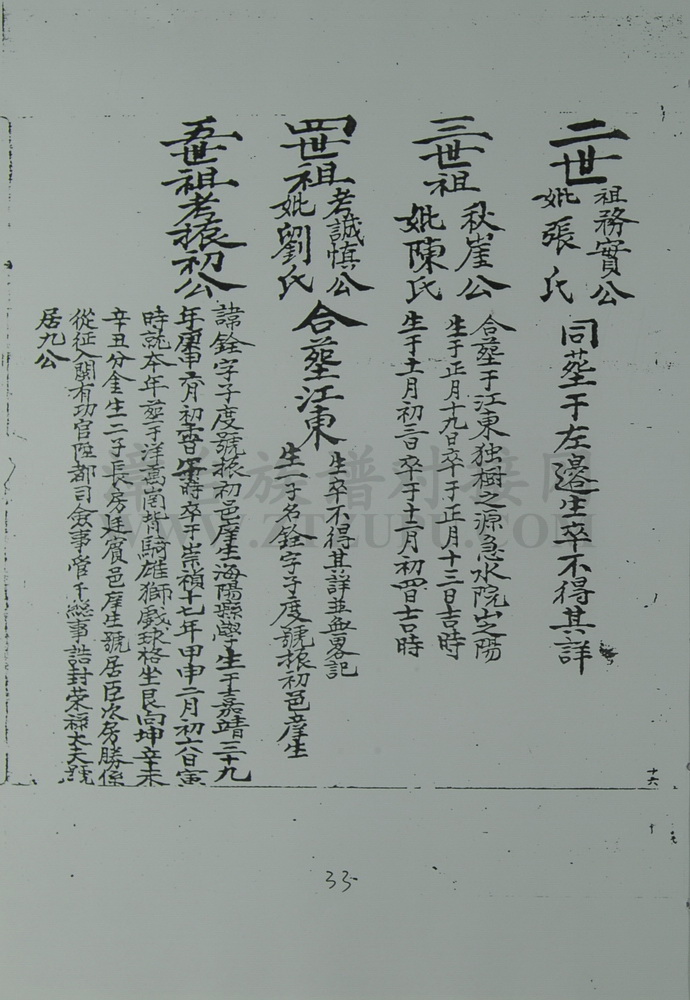 二世
祖務實公
妣張氏
同塟于左邉生卒不得其詳
三世祖
秋崖公
妣陳氏
合塟于江東独樹之源急水院山之陽
生于正月十九日卒于正月十三日吉時
生于十一月初三日卒于十二月初四日吉時
四世祖
考誠慎公
妣劉氏
合塟江東
生卒不得其詳並無畧记
生一子名銓字子度號振初邑庠生
五世祖考振初公
諱銓字子度號振初邑庠生海陽縣學生于嘉靖三十九
年庚申六月初 日 時卒于崇禎十七年甲申二月初六日寅
時就本年塟于洋萬崗背騎雄獅戲球格坐艮向坤辛未
辛丑分金生二子長房廷賓邑庠生號居臣次房勝係
從征入關有功官陞都司僉事管千總事誥封荣禄大夫號
居九公
十六
33
漳台族谱对接网
WWW.ZTZUPU.COM